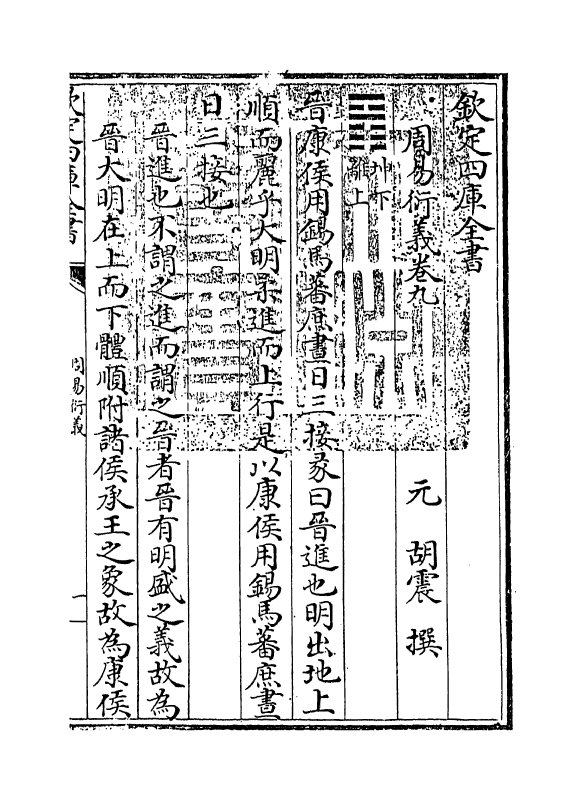 欽定四庫全書
周易衍義卷九
元　胡震　撰
坤下
離上
晉康侯用錫馬蕃庶晝日三接彖曰晉進也明出地上
順而麗乎大明柔進而上行是以康侯用錫馬蕃庶晝
日三接也
晉進也不謂之進而謂之晉者晉有明盛之義故為
晉大明在上而下體順附諸侯承王之象故為康侯
欽定四庫全書
周易衍義
一